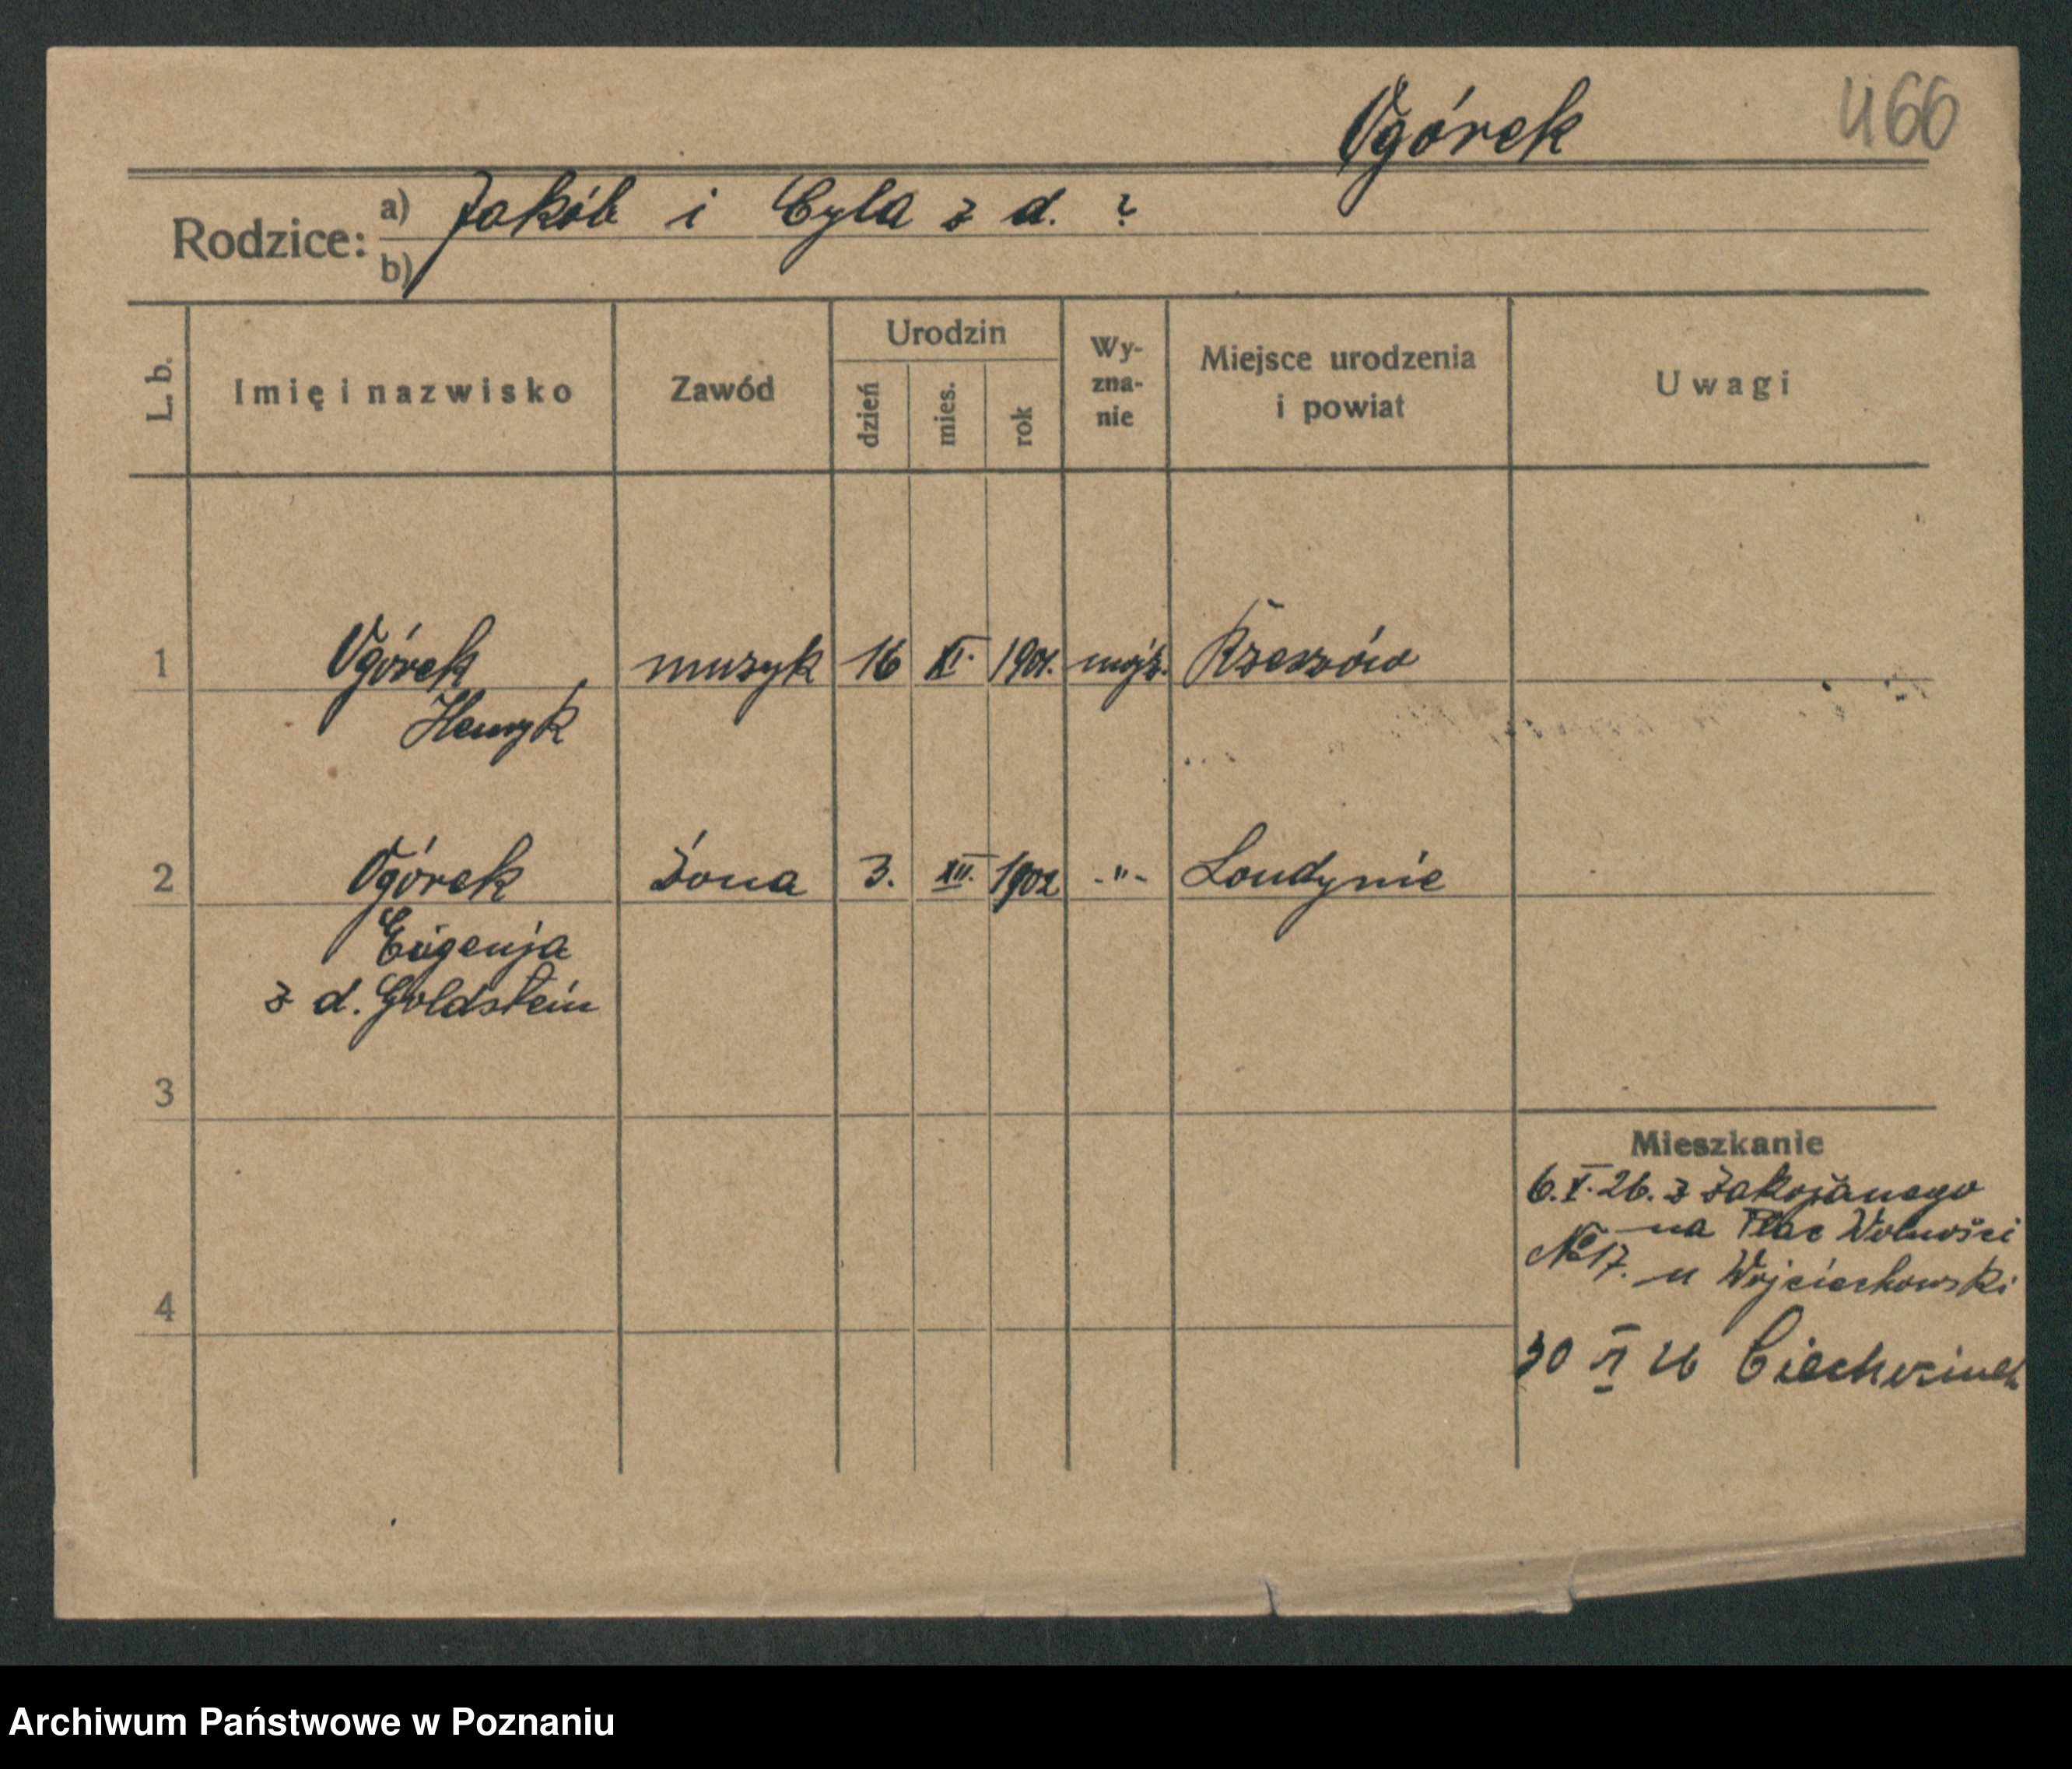 Ogórek 466
Rodzice: a) Jakób i Cyla z d. ?
b)
L. b. Imię i nazwisko Zawód Urodzin dzień mies. rok Wy-zna-nie Miejsce urodzenia i powiat Uwagi
1 Ogórek muzyk 16 XI. 1901. mojż. Rzeszów
Henryk
2 Ogórek Żona 3. XII. 1902 -"- Londynie
Eugenja
z d. Goldstein
3
Mieszkanie
6.X.26. z Zakopanego
na Plac Wolności
№ 17. u Wojciechowski
4
30 26 Ciechocinek
Archiwum Państwowe w Poznaniu